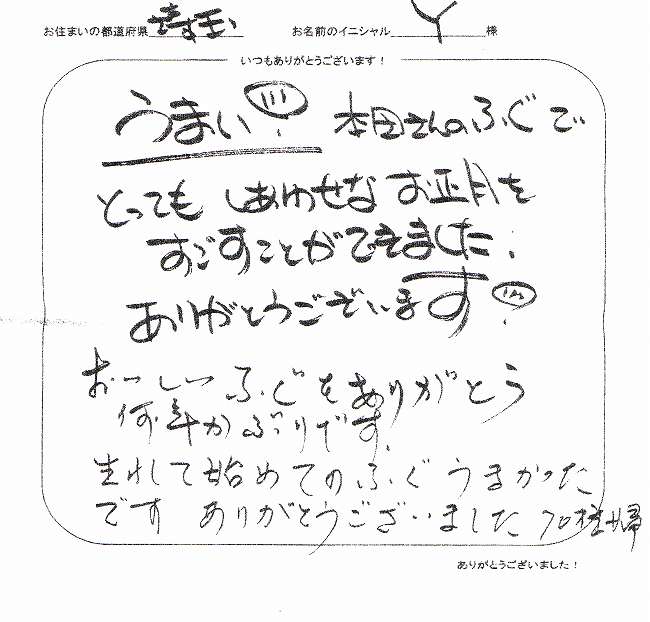 お住まいの都道府県 埼玉 お名前のイニシャル Y 様
いつもありがとうございます！
うまい！ 本田さんのふぐで
とっても しあわせな お正月を
すごすことができました。
ありがとうございます！
おいしいふぐをありがとう
何年かぶりです。
生れして始めてのふぐ うまかった
です ありがとうございました 70主婦
ありがとうございました！